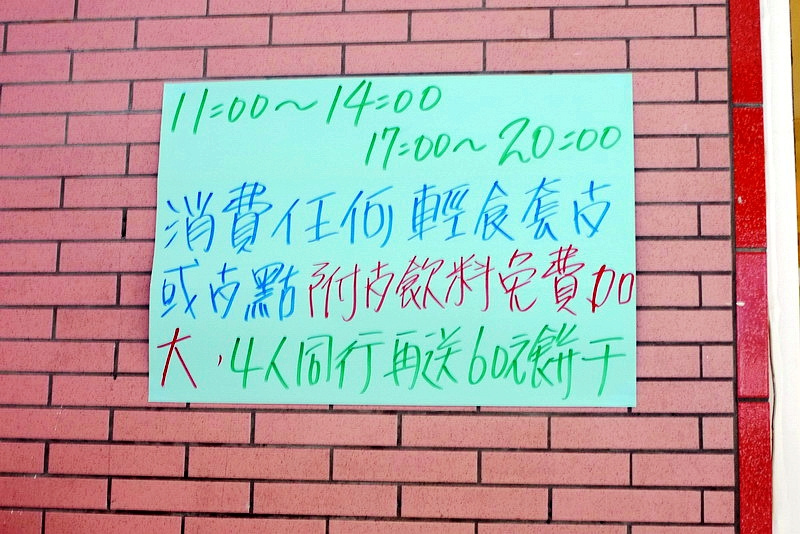 11:00～14:00
17:00～20:00
消費任何輕食套歺
或歺點附歺飲料免費加
大，4人同行再送60元餅干